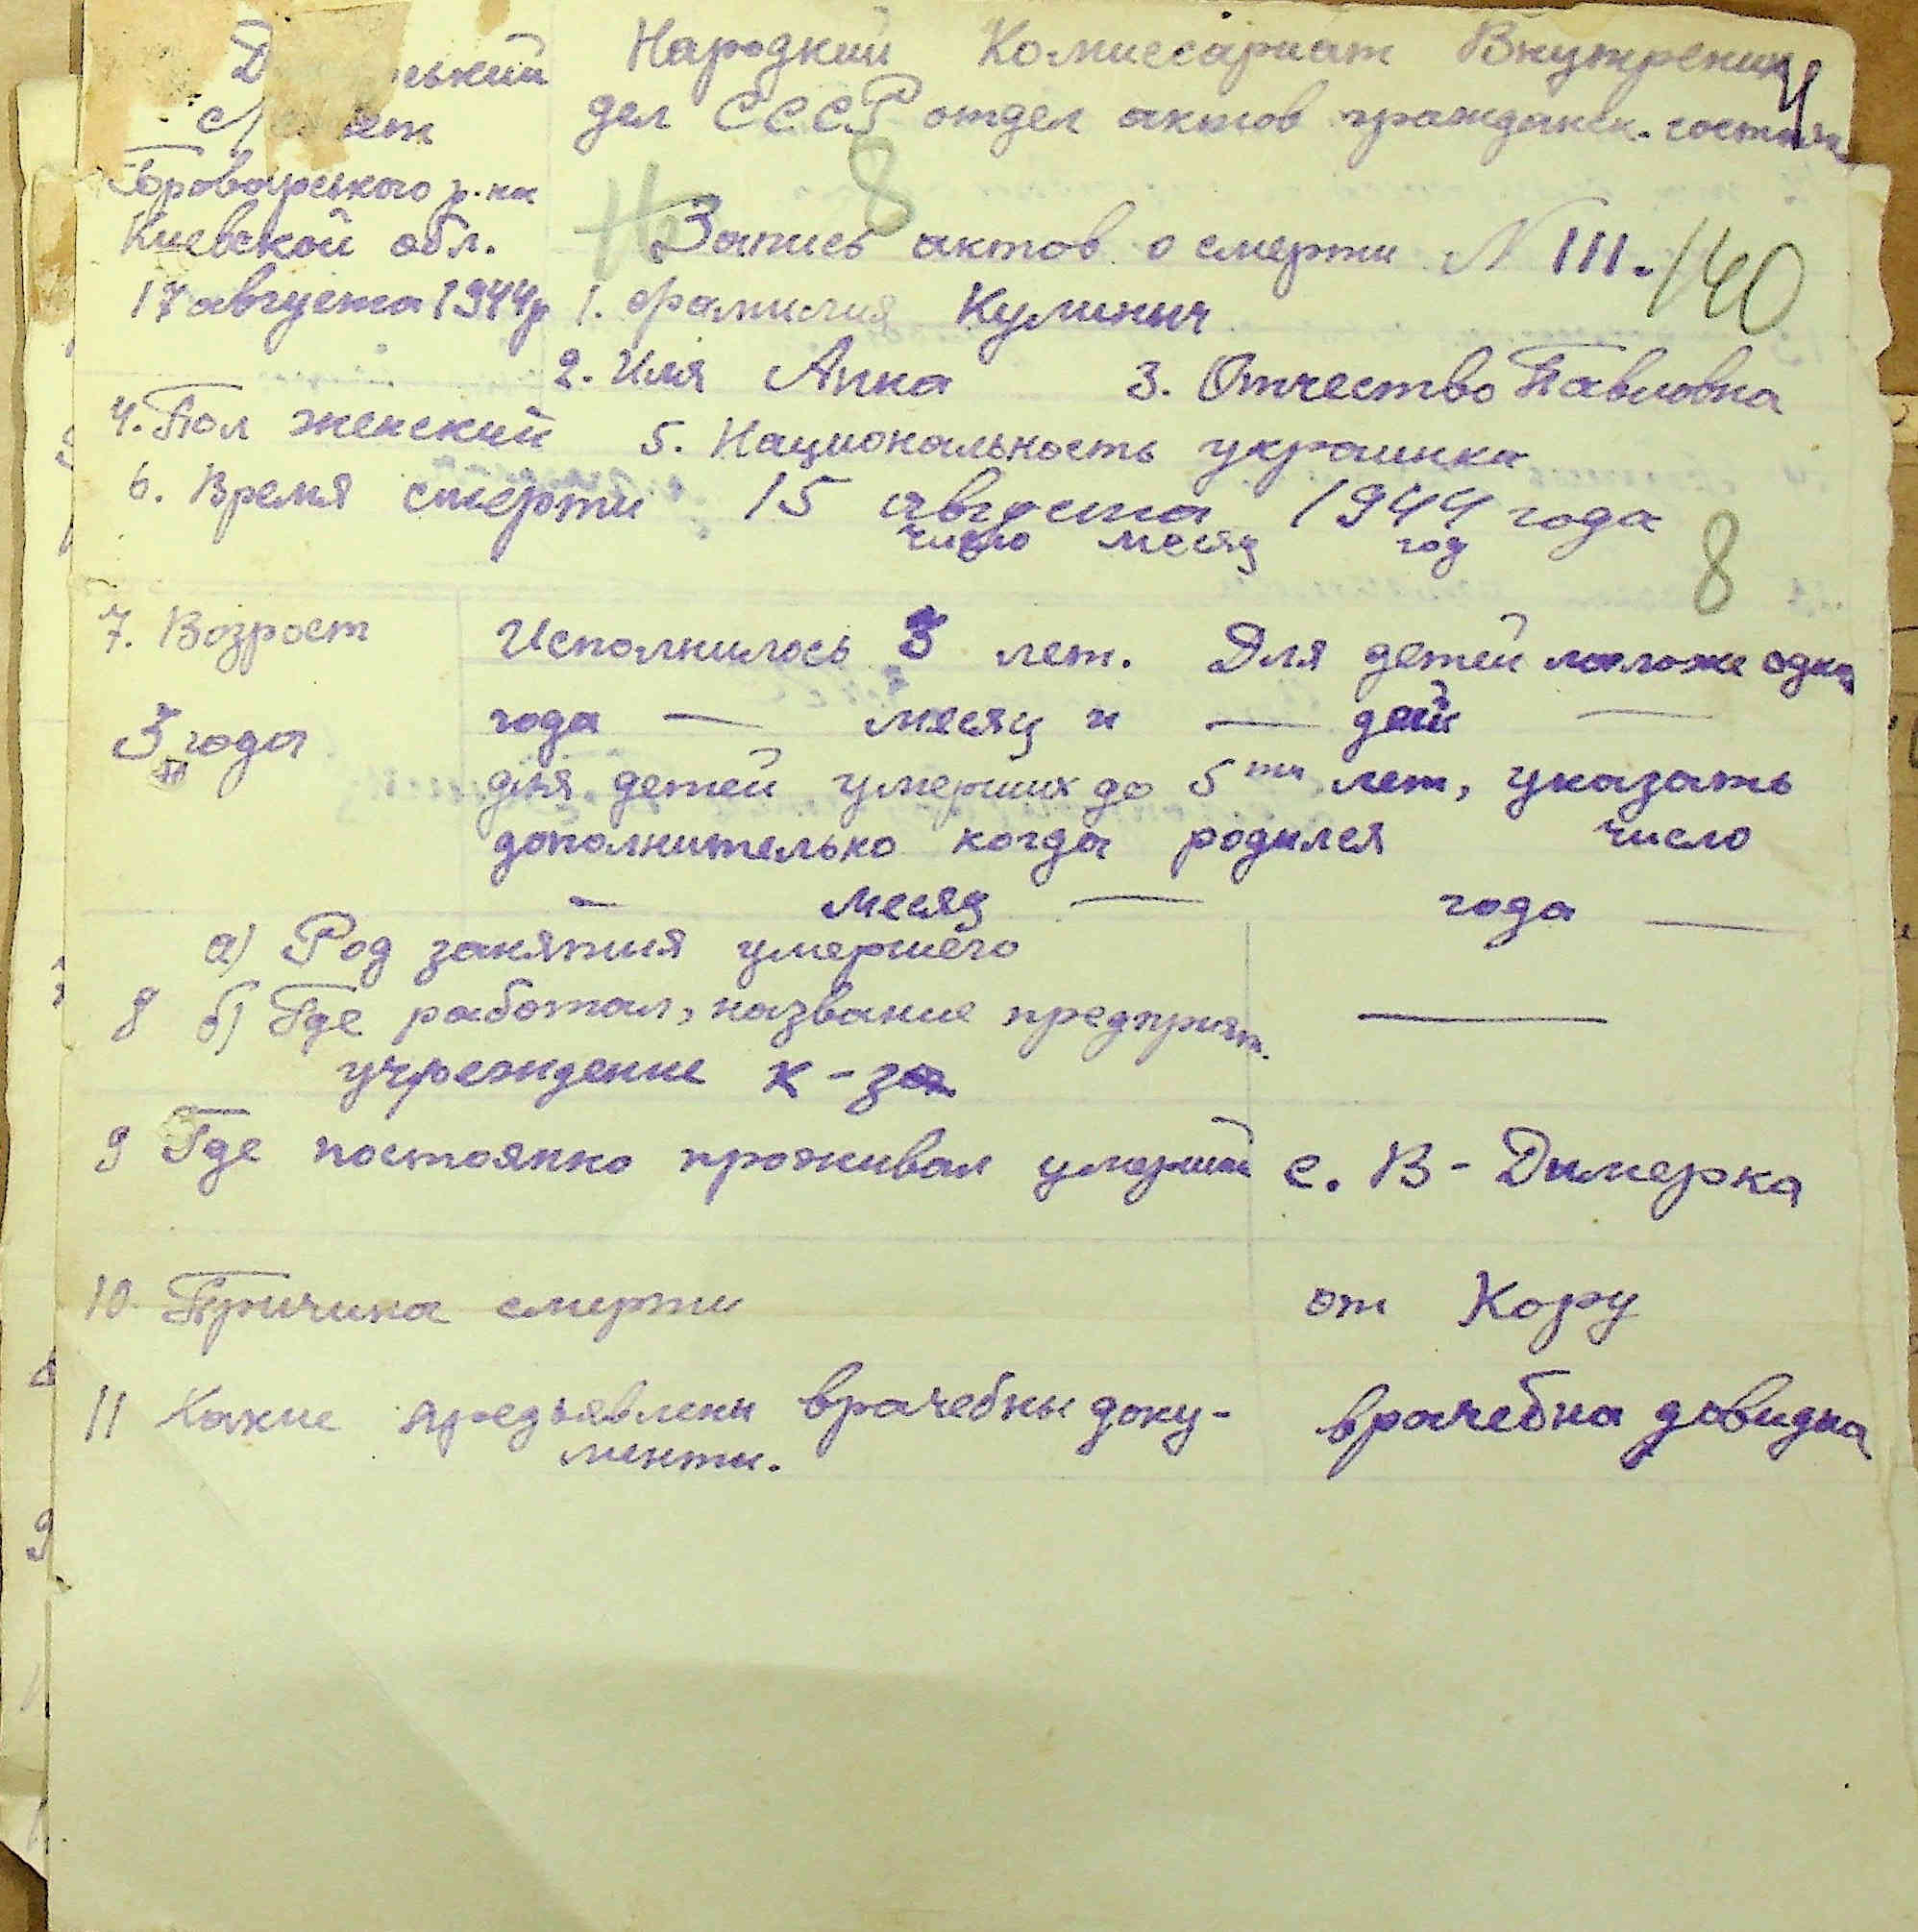 Народкий Комиссариат Внутрених
дел СССР отдел актов гражданск. состоян
Броварського р-на
Киевской обл.
17 августа 1944 р
№ 8
Запись актов о смерти N 111. 140
1. Фамилия Кулинич
2. Имя Анна 3. Отчество Павловна
4. Пол женский 5. Национальность украинка
6. Время смерти 15 августа 1944 года
число месяц год
8
7. Возрост Исполнилось 3 лет. Для детей моложе одна
года — месяц и — дей —
3 года
для детей умерших до 5ти лет, указать
дополнительно когда родился число
— месяц — года —
а) Род занятия умершего
8 б) Где работал, название предприят.
учреждение к-за —
9 Где постоянно проживал умерший с. В-Димерка
10. Причина смерти от Кору
11 Какие предъявлены врачебны доку- врачебна довидка
менты.